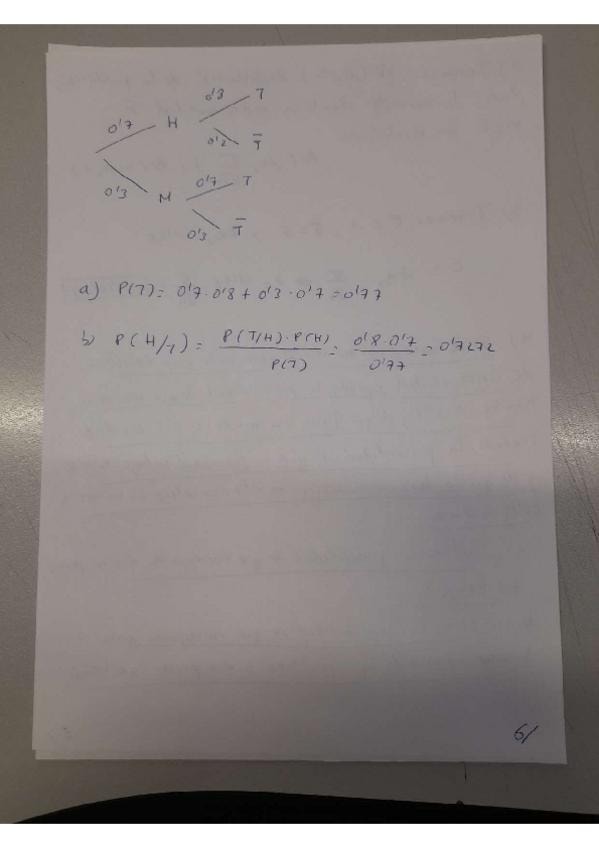 0'8 T
0'7 H
0'2 T̅
0'7 T
0'3 M
0'3 T̅
a) P(T) = 0'7 · 0'8 + 0'3 · 0'7 = 0'77
b) P(H/T) = P(T/H) · P(H) / P(T) = 0'8 · 0'7 / 0'77 = 0'7272
6/